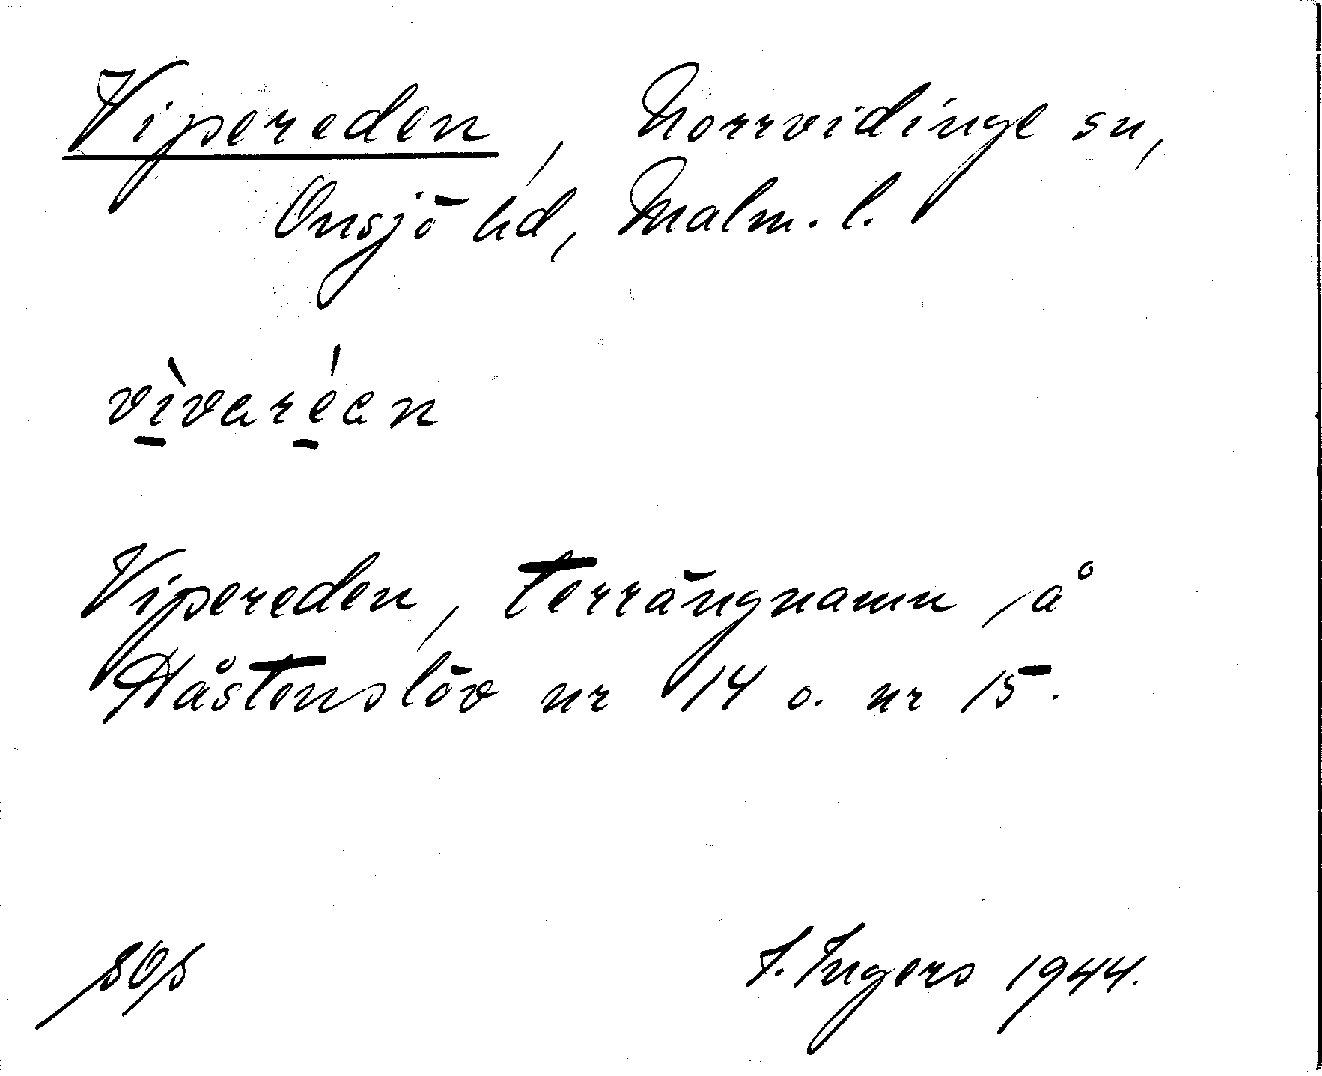 Vipereden, Norrvidinge sn,
Onsjö hd, Malm. l.
vìvaréan
Vipereden, terrängnamn på
Håstenslöv nr 14 o. nr 15.
I. Ingers 1944.